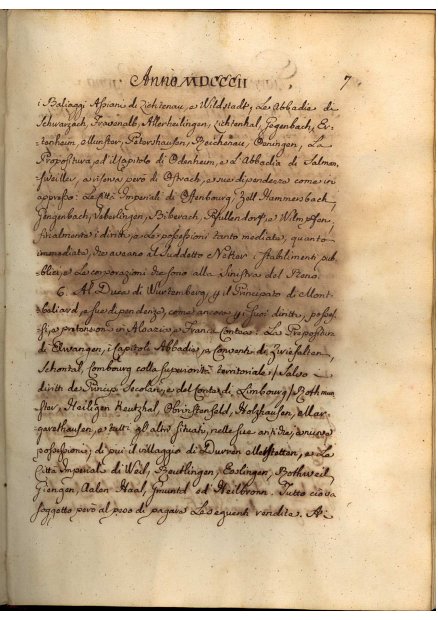 Anno MDCCCII 7
i Baliaggi Assiani di Lichtenau, e Wildstadt, Le Abbadie di
Schwarzach, Frauenalb, Allerheilingen, Lichtenhal, Gegenbach, Et-
tenheim, Munster, Petershausen, Reichenau, Oeningen, La
Propositura, ed il Capitolo di Odenheim, e L'Abbadia di Salman-
sweiller, a riserva però di Ostrach, e sue dipendenze come in
appresso: Le Città Imperiali di Offenbourg, Zell Hammersbach,
Gengenbach, Ueberlingen, Biberach, Pfullendorf, e Wimpfen,
finalmente i diritti, e Le possessioni tanto mediate, quanto
immediate, che avano al suddetto Neker i stabilimenti pub
blici, e Le corporazioni che sono alla sinistra del Reno.
6. Al Duca di Wurtemberg, p il Principato di Mont-
beliard, e sue dipendenze, come ancora p i suoi diritti, posses-
si, e pretensioni in Alsazia, e Franca Contea: La Propositura
di Elwangen, i Capitoli Abbadie, e Conventi di Zwiefalten,
Schontal, Combourg colla superiorità territoriale: /: Salvo i
diritti de Principi Secolari, e del Conte di Limbourg :/ Rothmun
ster, Heiligen Keutzhal, Obrinstenfeld, Holzhausen, Mar-
garethausen, e tutti gli altri situati, nelle sue antiche, e nuove
possessioni; di piu il villaggio di Durren Mettstetten, e Le
Città Imperiali di Weil, Reutlingen, Eslingen, Rothweil,
Giengen, Aalen Haal, Gmuntel ed Heilbronn. Tutto ciò va
soggetto però al peso di pagare Le seguenti rendite. Ai